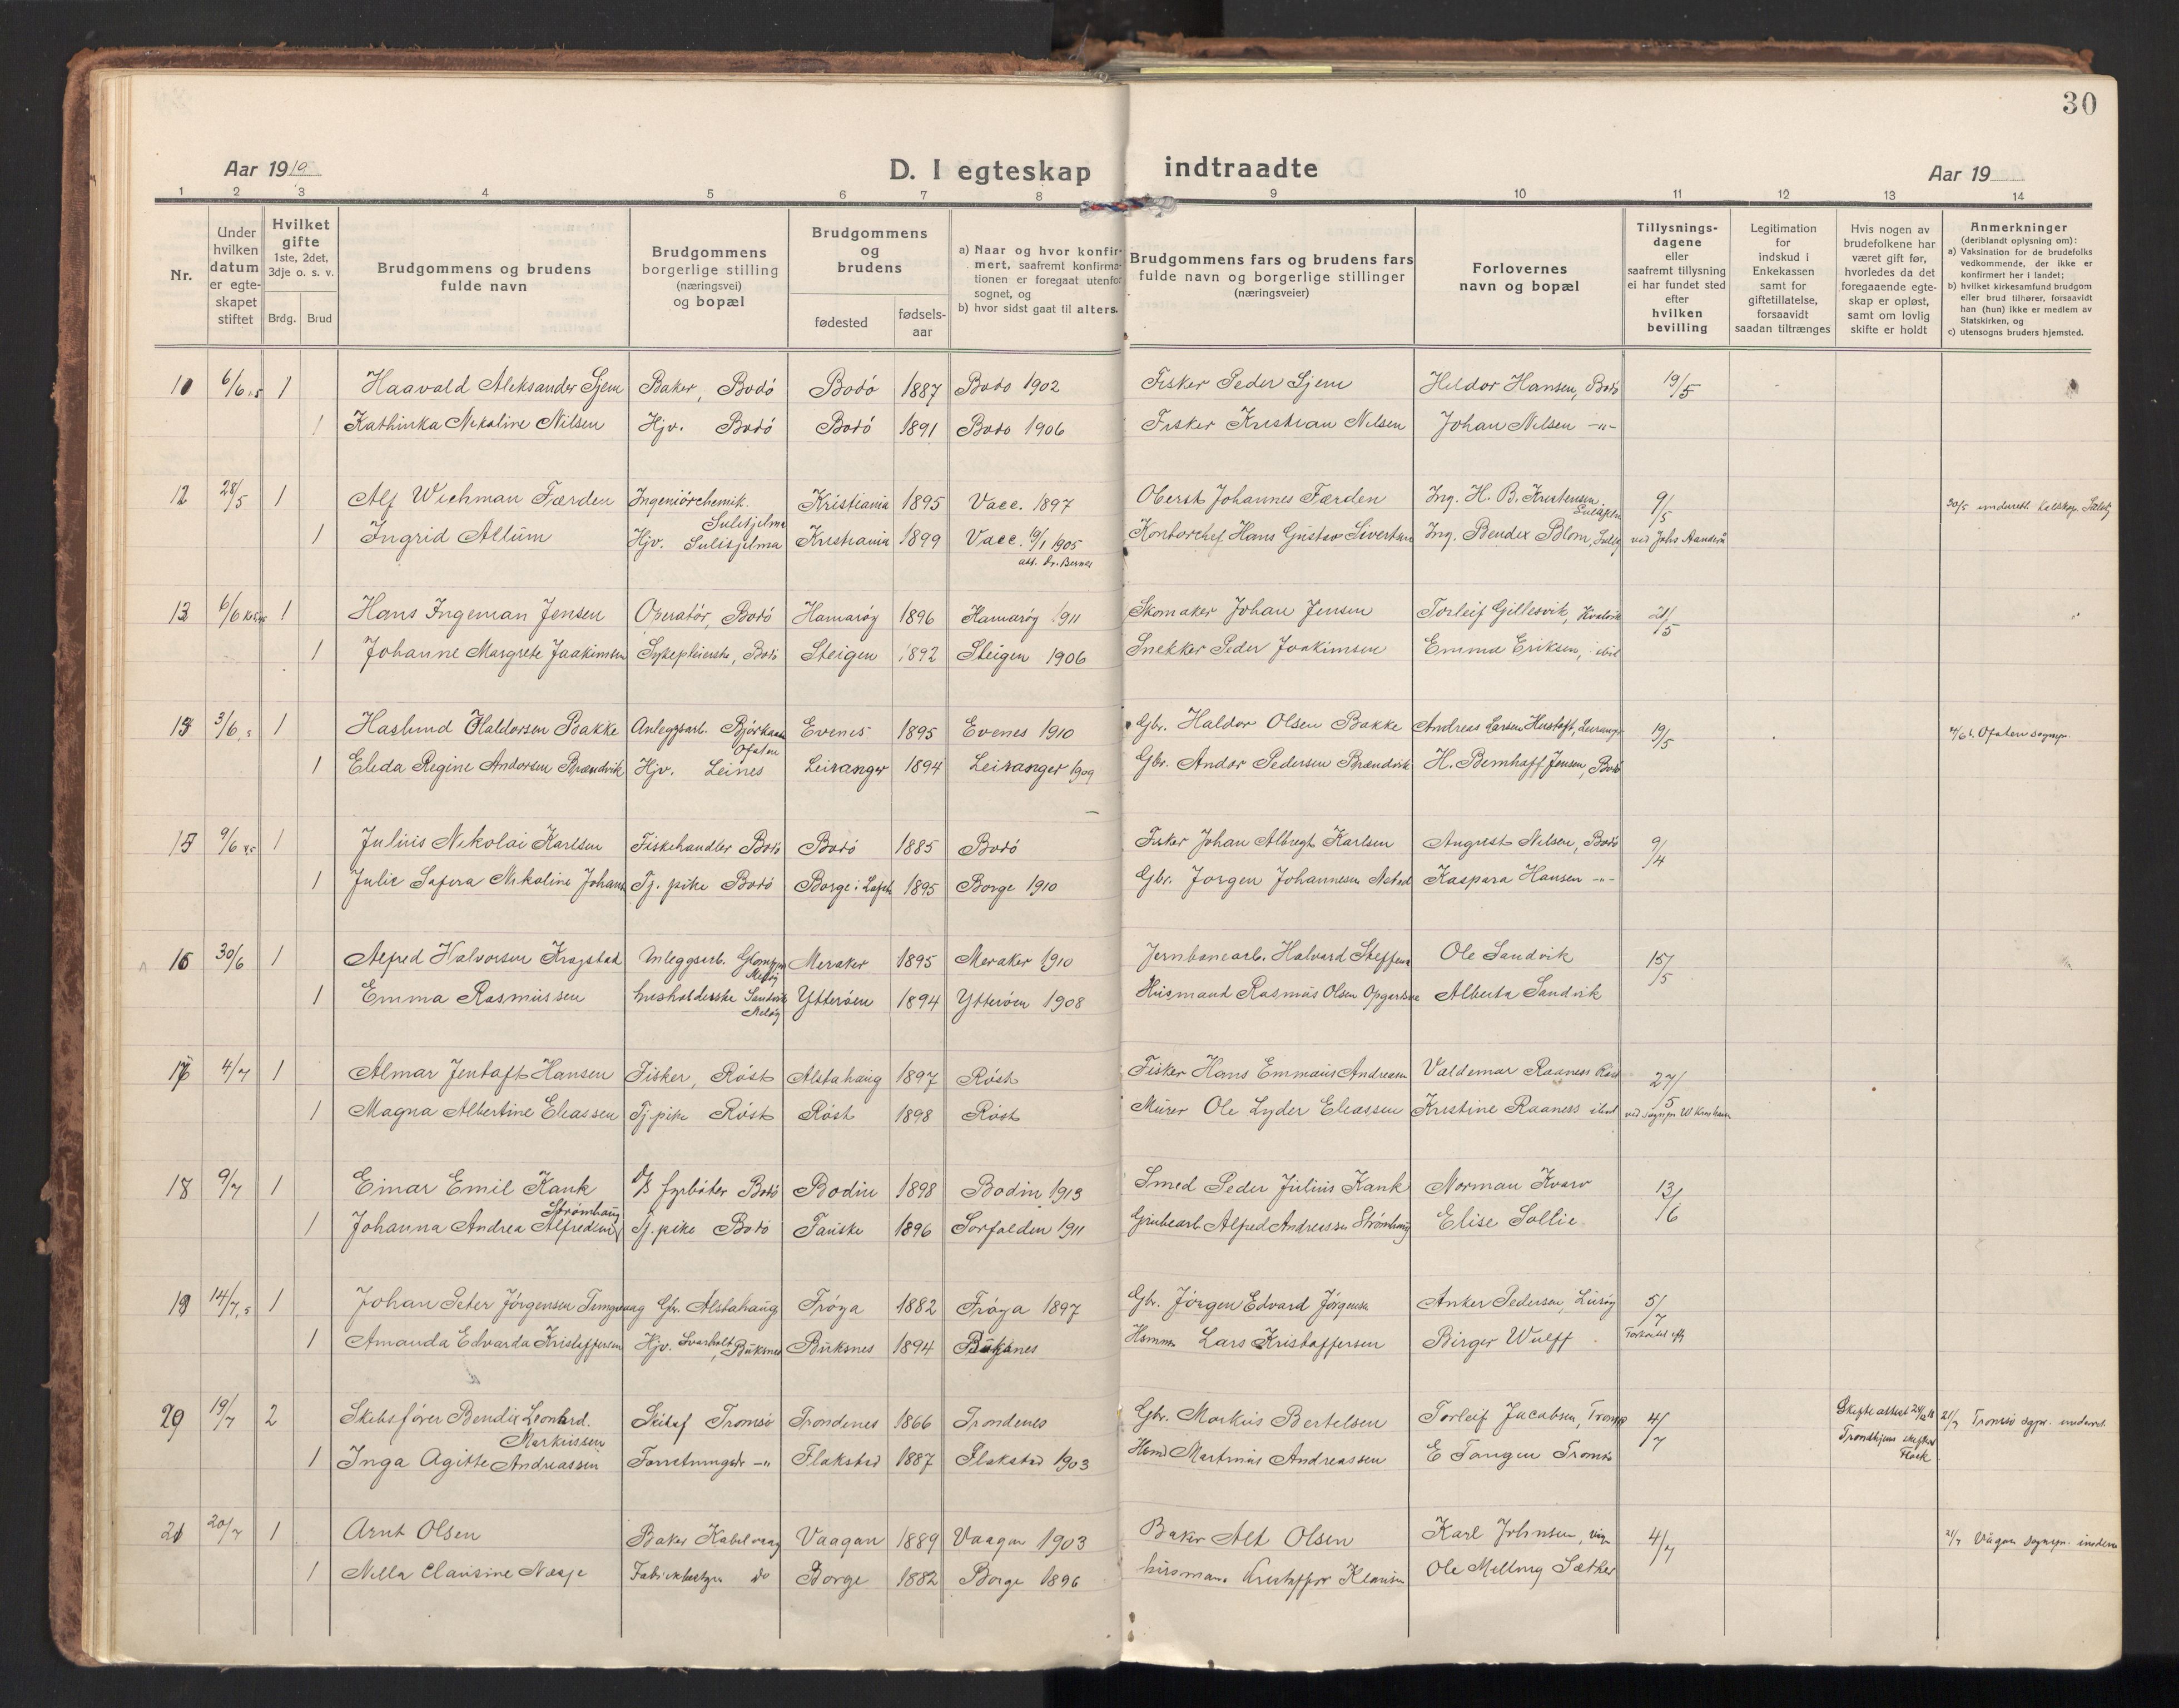 30
Aar 1919 D. I egteskap indtraadte Aar 19
1 2 3 4 5 6 7 8 9 10 11 12 13 14
Nr.
Under hvilken datum er egteskapet stiftet
Hvilket gifte 1ste, 2det, 3dje o. s. v.
Brdg. Brud
Brudgommens og brudens fulde navn
Brudgommens borgerlige stilling (næringsvei) og bopæl
Brudgommens og brudens
fødested fødsels-aar
a) Naar og hvor konfirmert, saafremt konfirmationen er foregaat utenfor sognet, og
b) hvor sidst gaat til alters.
Brudgommens fars og brudens fars fulde navn og borgerlige stillinger (næringsveier)
Forlovernes navn og bopæl
Tillysningsdagene eller saafremt tillysning ei har fundet sted efter hvilken bevilling
Legitimation for indskud i Enkekassen samt for giftetillatelse, forsaavidt saadan tiltrænges
Hvis nogen av brudefolkene har været gift før, hvorledes da det foregaaende egteskap er opløst, samt om lovlig skifte er holdt
Anmerkninger (deriblandt oplysning om):
a) Vaksination for de brudefolks vedkommende, der ikke er konfirmert her i landet;
b) hvilket kirkesamfund brudgom eller brud tilhører, forsaavidt han (hun) ikke er medlem av Statskirken, og
c) utensogns bruders hjemsted.
6/6 1 Haavald Aleksander Sjem Baker, Bodö Bodö 1887 Bodö 1902 Fisker Peder Sjem Heldor Hansen, Bodö 19/5
1 Kathinka Nikoline Nilsen Hjv. Bodö Bodö 1891 Bodö 1906 Fisker Kristian Nilsen Johan Nilsen -"-
12 28/5 1 Alf Wichman Færden Ingeniörchemik. Sulitjelma Kristiania 1895 Vacc. 1897 Oberst Johannes Færden Ing. H. B. Kristensen 9/5 30/5
1 Ingrid Allum Hjv. Sulitjelma Kristiania 1899 Vacc. 19/1 1905 Kontorchef Hans Gustav Sivertsen Ing. Bendix Blom ved Johs
13 6/6 1 Hans Ingeman Jensen Operatör, Bodö Hamaröy 1896 Hamaröy 1911 Skomaker Johan Jensen Torleif Gillesvik, 21/5
1 Johanne Margrete Joakimsen Sykepleierske, Bodö Steigen 1892 Steigen 1906 Snekker Peder Joakimsen Emma Eriksen, ibid
3/6 1 Haslund Haldorsen Bakke Anleggsarb. Bjørkaasen Ofoten Evenes 1895 Evenes 1910 Gbr. Haldor Olsen Bakke Andreas Larsen 19/5 Ofoten sognepr.
1 Eleda Regine Andorsen Brændvik Hjv. Leines Leiranger 1894 Leiranger 1909 Gbr. Andor Pedersen Brændvik H. Bernhoff Jensen, Bodö
9/6 1 Julius Nikolai Karlsen Fiskehandler Bodö Bodö 1885 Bodö Fisker Johan Albregt Karlsen August Nilsen, Bodö 9/4
1 Julie Safira Nikoline Johans Tj. pike Bodö Borge i Lofoten 1895 Borge 1910 Gbr. Jorgen Johannesen Kaspara Hansen -"-
16 30/6 1 Alfred Halvorsen Krogstad Anleggsarb. Glomfjord Meløy Meraker 1895 Meraker 1910 Jernbanearb. Halvard Steffens Ole Sandvik 15/5
1 Emma Rasmussen husholderske Sandvik Meløy Ytteröen 1894 Ytteröen 1908 Husmand Rasmus Olsen Alberta Sandvik
17 4/7 1 Almar Jentoft Hansen Fisker, Röst Alstahaug 1897 Röst Fisker Hans Emmaus Andreasen Valdemar Raaness Röst 27/5
1 Magna Albertine Eleassen Tj. pike Röst Röst 1898 Röst Murer Ole Lyder Eleassen Kristine Raaness ibid ved sognepr.
18 9/7 1 Einar Emil Kank D/S fyrböter Bodö Bodin 1898 Bodin 1913 Smed Peder Julius Kank Norman Kvarv 13/6
1 Johanna Andrea Alfredsen Strømhaug Tj. pike Bodö Fauske 1896 Sorfolden 1911 Grubearb Alfred Andreassen Strömhaug Elise Sollie
19 14/7 1 Johan Peter Jörgensen Gbr. Alstahaug Fröya 1882 Fröya 1897 Gbr. Jörgen Edvard Jörgensen Anker Pedersen, Luröy 5/7
1 Amanda Edvarda Kristoffersen Hjv. Svarholt, Buksnes Buksnes 1894 Buksnes Lars Kristoffersen Birger Wulff
20 19/7 2 Skibsförer Bendix Leonhard Markussen Tromsö Trondenes 1866 Trondenes Gbr. Markus Bertelsen Torleif Jacobsen, Tromsö 4/7 Skifteattest Trondhjems 21/7 Tromsö sgpr. underret
1 Inga Agitte Andreassen Forretningsdr -"- Flakstad 1887 Flakstad 1903 Martinus Andreassen E Tangen Tromsö
21 20/7 1 Arnt Olsen Baker Kabelvaag Vaagan 1889 Vaagan 1903 Baker Olsen Karl Johnsen, 4/7 21/7 Vågan sognepr.
1 Nella Clausine Næsje do Borge 1882 Borge 1896 husman Kristoffer Klausen Ole Melling Sæther